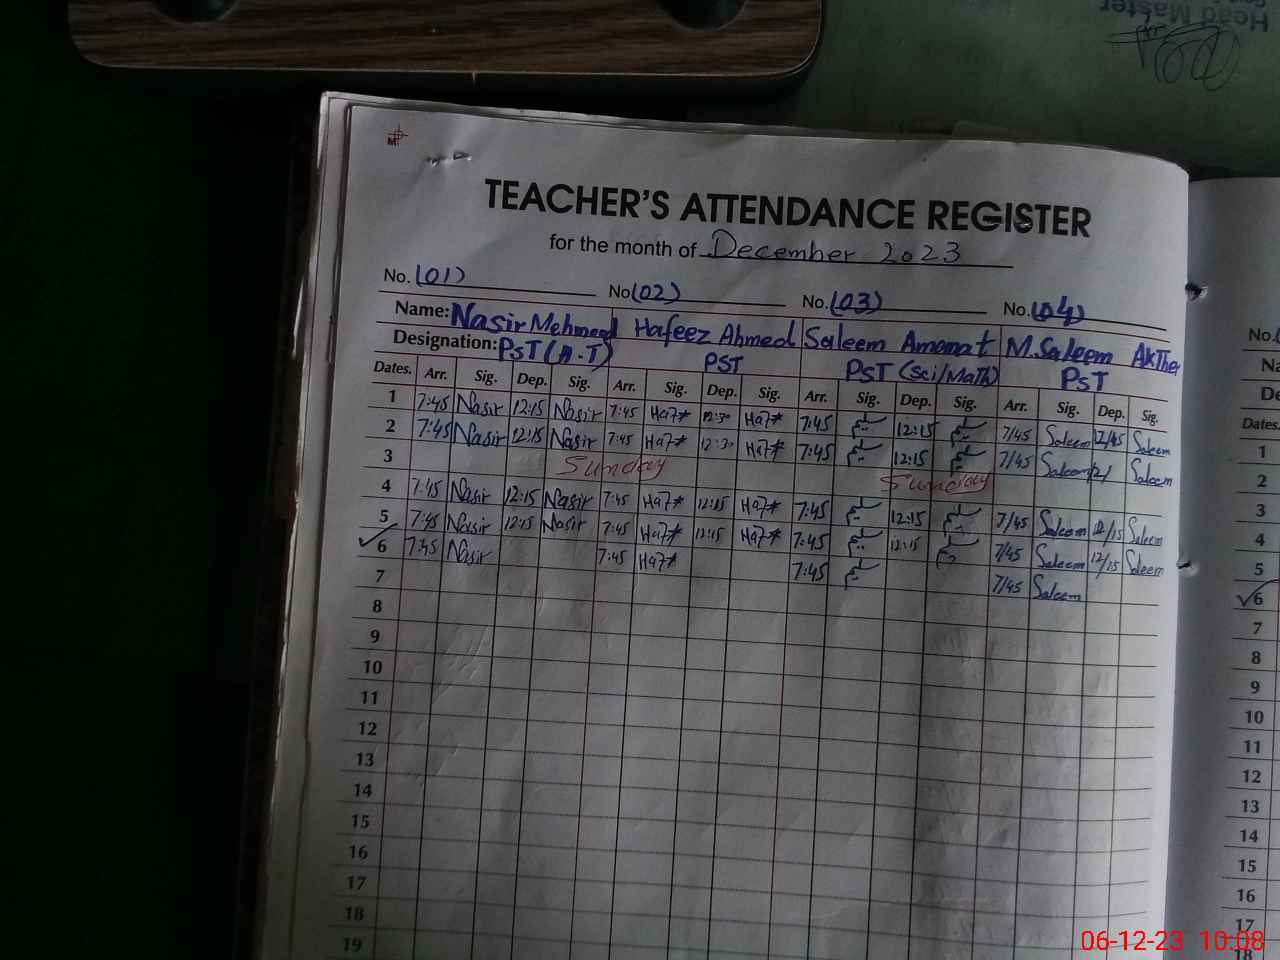 Head Master
M
TEACHER'S ATTENDANCE REGISTER
for the month of December 2023
No. (01) No (02) No. (03) No. (04)
Name: Nasir Mehmood Hafeez Ahmed Saleem Amanat M. Saleem Akther
Designation: PST (A.T) PST PST (Sci/Math) PST
Dates. Arr. Sig. Dep. Sig. Arr. Sig. Dep. Sig. Arr. Sig. Dep. Sig. Arr. Sig. Dep. Sig.
1 7:45 Nasir 12:15 Nasir 7:45 12:30 7:45 سلیم 12:15 سلیم 7/45 Saleem 12/45 Saleem
2 7:45 Nasir 12:15 Nasir 7:45 12:30 7:45 سلیم 12:15 سلیم 7/45 Saleem Saleem
3 Sunday Sunday
4 7:45 Nasir 12:15 Nasir 7:45 12:15 7:45 سلیم 12:15 سلیم 7/45 Saleem 12/15 Saleem
5 7:45 Nasir 12:15 Nasir 7:45 12:15 7:45 سلیم 12:15 سلیم 7/45 Saleem 12/15 Saleem
6 7:45 Nasir 7:45 7:45 سلیم 7/45 Saleem
7
8
9
10
11
12
13
14
15
16
17
18
19
No.
Na
De
Dates.
1
2
3
4
5
6
7
8
9
10
11
12
13
14
15
16
17
18
06-12-23 10:08